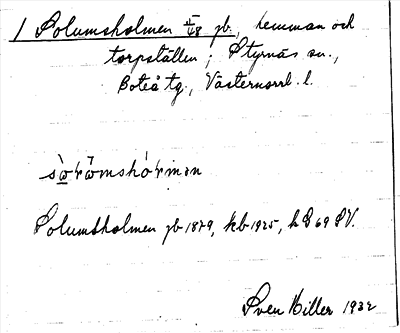 / Solumsholmen II/48 jb., hemman och
torpställen; Styrnäs sn.,
Boteå tg., Västernorrl. l.
sὼrömshórmɘn
Solumsholmen jb 1879, kb 1925, h S 69 SV.
Sven Hiller 1932